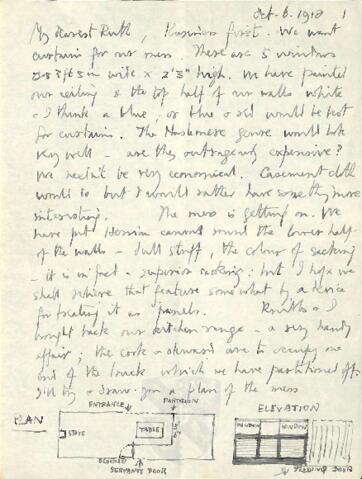 Oct. 6. 1918 1
My dearest Ruth, Business first. We want
curtains for our mess. There are 5 windows
3ft 5 in wide x 2'3" high. We have painted
our ceiling & the top half of our walls white
& I think a blue, or blue & red would be best
for curtains. The Haslemere would look
very well - are they outrageously expensive?
We needn't be very economical. Casement cloth
would do but I would rather have something more
interesting. The mess is getting on. We
have put Hessian canvas round the lower half
of the walls - dull stuff, the colour of sacking
- it is in fact a superior sacking; but I hope we
shall relieve that feature somewhat by a device
for treating it as panels. & I
bought back our kitchen range - a very handy
affair; the cook & steward are to occupy one
end of the which we have partitioned off.
I'll try & draw you a plan of the mess
PLAN ENTRANCE PARTITION ELEVATION
STOVE TABLE WINDOW WINDOW
SERVANTS DOOR DOOR